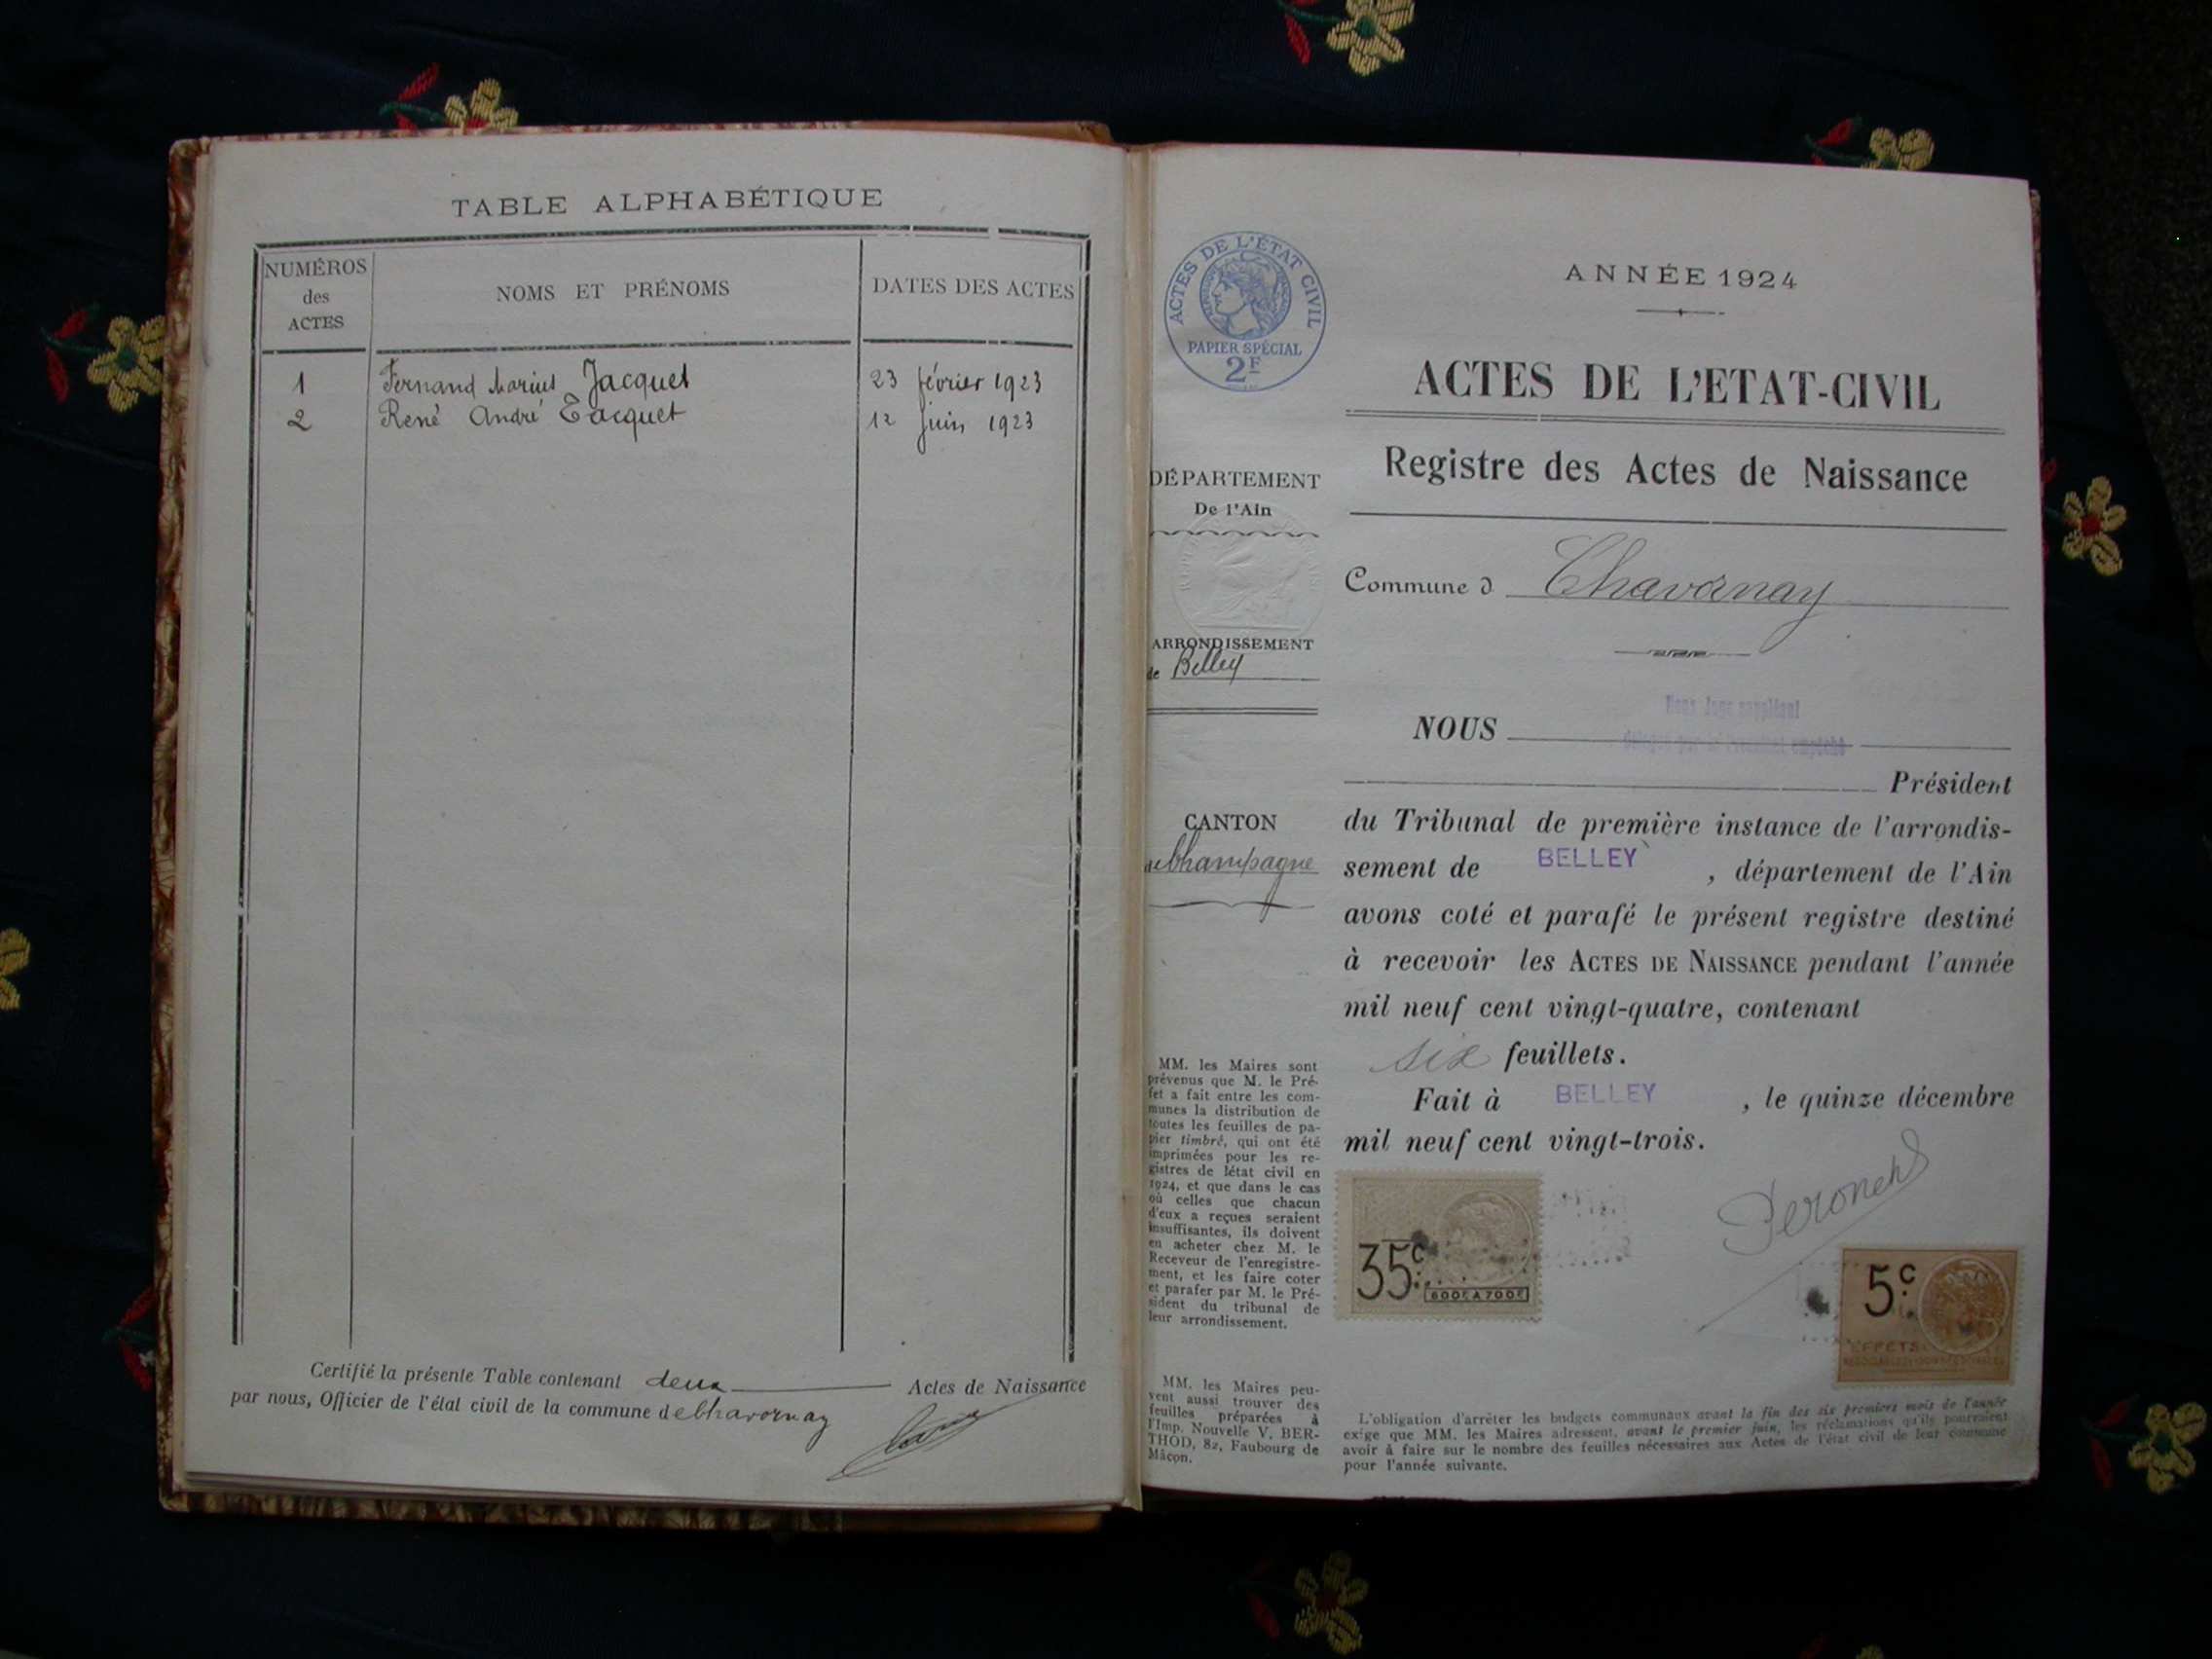 TABLE ALPHABÉTIQUE
NUMÉROS
des
ACTES
NOMS ET PRÉNOMS
DATES DES ACTES
1 Fernand Marius Jacquet 23 février 1923
2 René André Jacquet 12 juin 1923
Certifié la présente Table contenant deux Actes de Naissance
par nous, Officier de l'état civil de la commune de Chavornay
ACTES DE L'ÉTAT CIVIL
PAPIER SPÉCIAL
2F
DÉPARTEMENT
De l'Ain
ARRONDISSEMENT
de Belley
CANTON
de Champagne
MM. les Maires sont
prévenus que M. le Pré-
fet a fait entre les com-
munes la distribution de
toutes les feuilles de pa-
pier timbré, qui ont été
imprimées pour les re-
gistres de létat civil en
1924, et que dans le cas
où celles que chacun
d'eux a reçues seraient
insuffisantes, ils doivent
en acheter chez M. le
Receveur de l'enregistre-
ment, et les faire coter
et parafer par M. le Pré-
sident du tribunal de
leur arrondissement.
MM. les Maires peu-
vent aussi trouver des
feuilles préparées à
l'Imp. Nouvelle V. BER-
THOD, 82, Faubourg de
Mâcon.
ANNÉE 1924
ACTES DE L'ETAT-CIVIL
Registre des Actes de Naissance
Commune d Chavornay
NOUS
Président
du Tribunal de première instance de l'arrondis-
sement de BELLEY, département de l'Ain
avons coté et parafé le présent registre destiné
à recevoir les ACTES DE NAISSANCE pendant l'année
mil neuf cent vingt-quatre, contenant
six feuillets.
Fait à BELLEY, le quinze décembre
mil neuf cent vingt-trois.
35c
600F A 700F
5c
EFFETS
L'obligation d'arrêter les budgets communaux avant la fin des six premiers mois de l'année
exige que MM. les Maires adressent, avant le premier juin, les réclamations qu'ils pourraient
avoir à faire sur le nombre des feuilles nécessaires aux Actes de l'état civil de leur commune
pour l'année suivante.